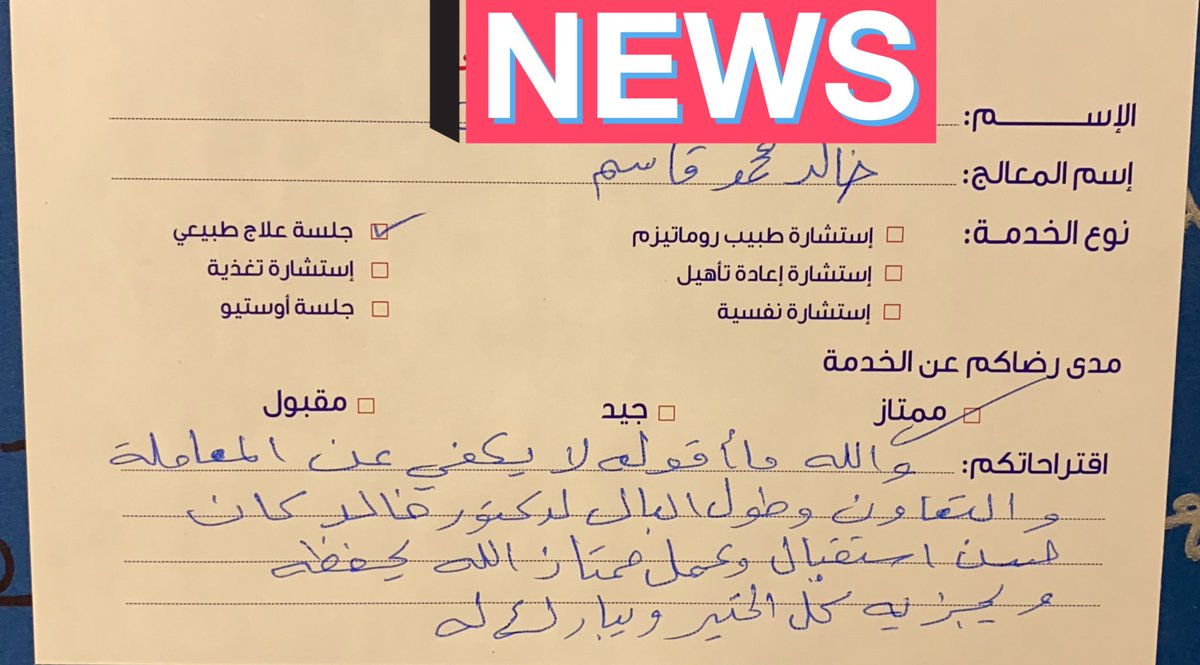 NEWS
الإســـــم:
إسم المعالج: خالد محمد قاسم
نوع الخدمـة: إستشارة طبيب روماتيزم جلسة علاج طبيعي
إستشارة إعادة تأهيل إستشارة تغذية
إستشارة نفسية جلسة أوستيو
مدى رضاكم عن الخدمة
ممتاز جيد مقبول
اقتراحاتكم: والله ما أقوله لا يكفي عن المعاملة
والتعاون وطول البال لدكتور خالد كان
حسن استقبال وعمل ممتاز الله يحفظه
ويجزيه كل الخير ويبارك له